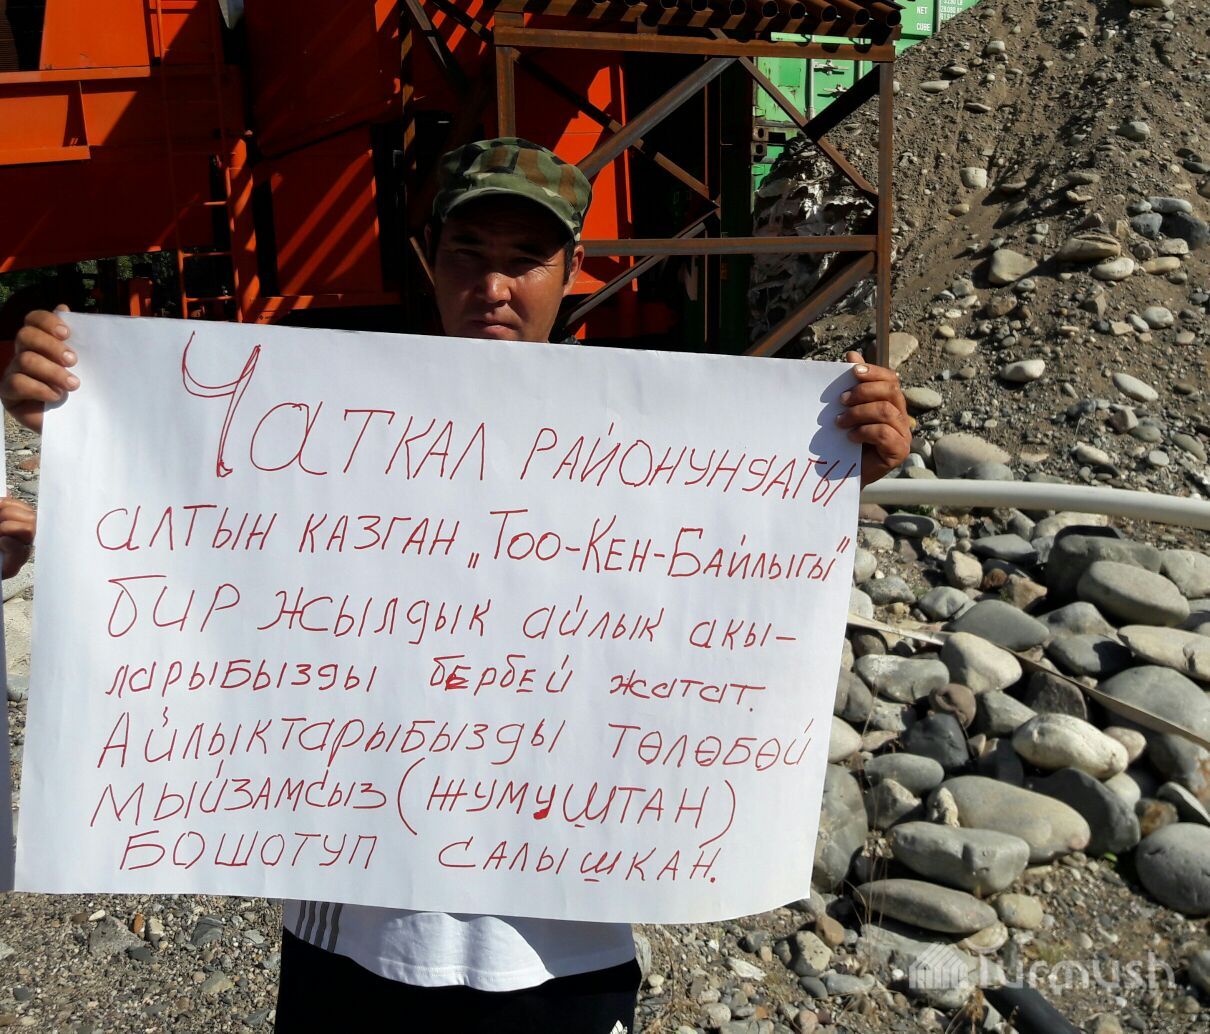 NET
CUBE
Чаткал районундагы
алтын казган „Тоо-Кен-Байлыгы"
бир жылдык айлык акы-
ларыбызды бербей жатат.
Айлыктарыбызды төлөбөй
мыйзамсыз (жумуштан)
бошотуп салышкан.
Turmush